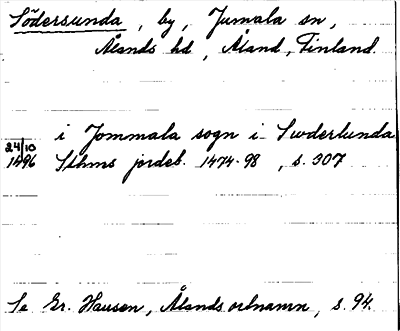 Södersunda, by, Jumala sn,
Ålands hd, Åland, Finland.
i Jommala sogn i Swderlunda
24/10
1496 Sthms jordeb. 1474-98, s. 307
Se Gr. Hausen, Ålands ortnamn, s. 94.